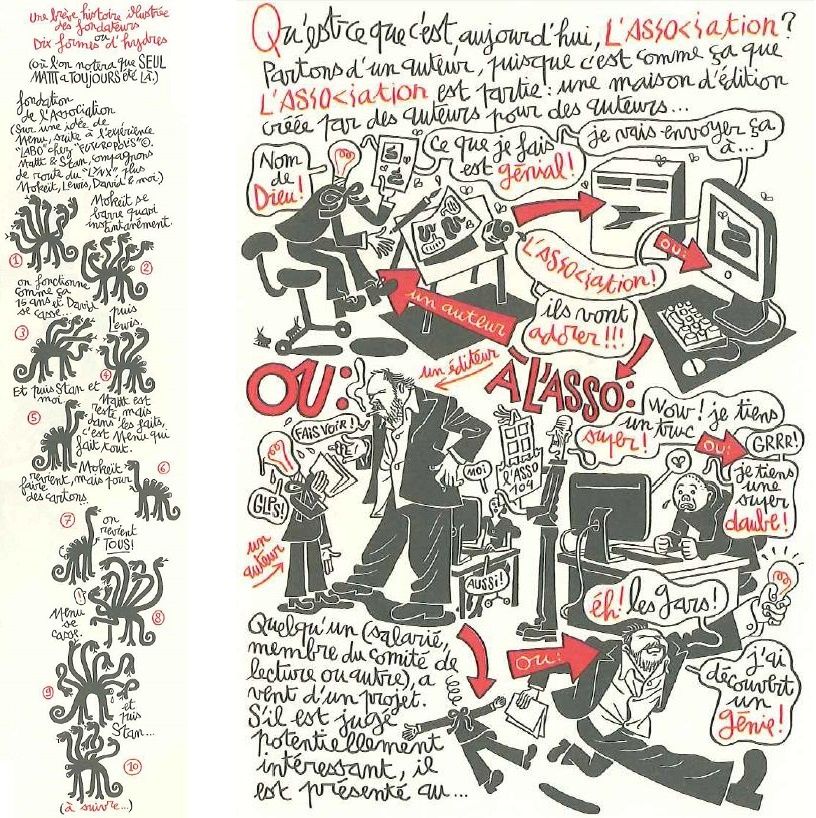 Une brève histoire illustrée
des fondateurs
ou
Dix formes d'hydres
(où l'on notera que SEUL
MATTT a TOUJOURS été LÀ.)
fondation
de l'Association
(Sur une idée de
Menu, suite à l'expérience
"LABO" chez "FUTUROPOLIS"©.
Mattt & Stan, compagnons
de route du "LYNX", plus
Mokeït, Lewis, David & moi.)
Mokeït se
barre quasi
instantanément.
1
2
on fonctionne
comme ça
15 ans et David
se casse...
puis
Lewis.
3
4
Et puis Stan et
moi.
Mattt est
resté mais
dans les faits,
c'est Menu qui
fait tout.
5
Mokeït
revient, mais pour
faire
des cartons.
6
7
on
revient
TOUS!
Menu
se
casse.
8
9
et
puis
Stan...
10
(à suivre...)
Qu'est-ce que c'est, aujourd'hui, L'ASSOciation?
Partons d'un auteur, puisque c'est comme ça que
L'ASSOciation est partie: une maison d'édition
créée par des auteurs pour des auteurs...
Nom
de
Dieu!
Ce que je fais
est génial!
je vais envoyer ça
à...
L'ASSOciation!
OU:
ils vont
adorer!!!
un auteur
OU:
un éditeur
À L'ASSO:
FAIS VOIR!
GLPS!
un
auteur
MOI
AUSSI!
L'ASSO
109
Wow! je tiens
un truc
super!
OU:
GRRR!
je tiens
une
super
daube!
éh! les gars!
j'ai
découvert
un
génie!
Quelqu'un (salarié,
membre du comité de
lecture ou autre), a
vent d'un projet.
S'il est jugé
potentiellement
intéressant, il
est présenté au...
OU: